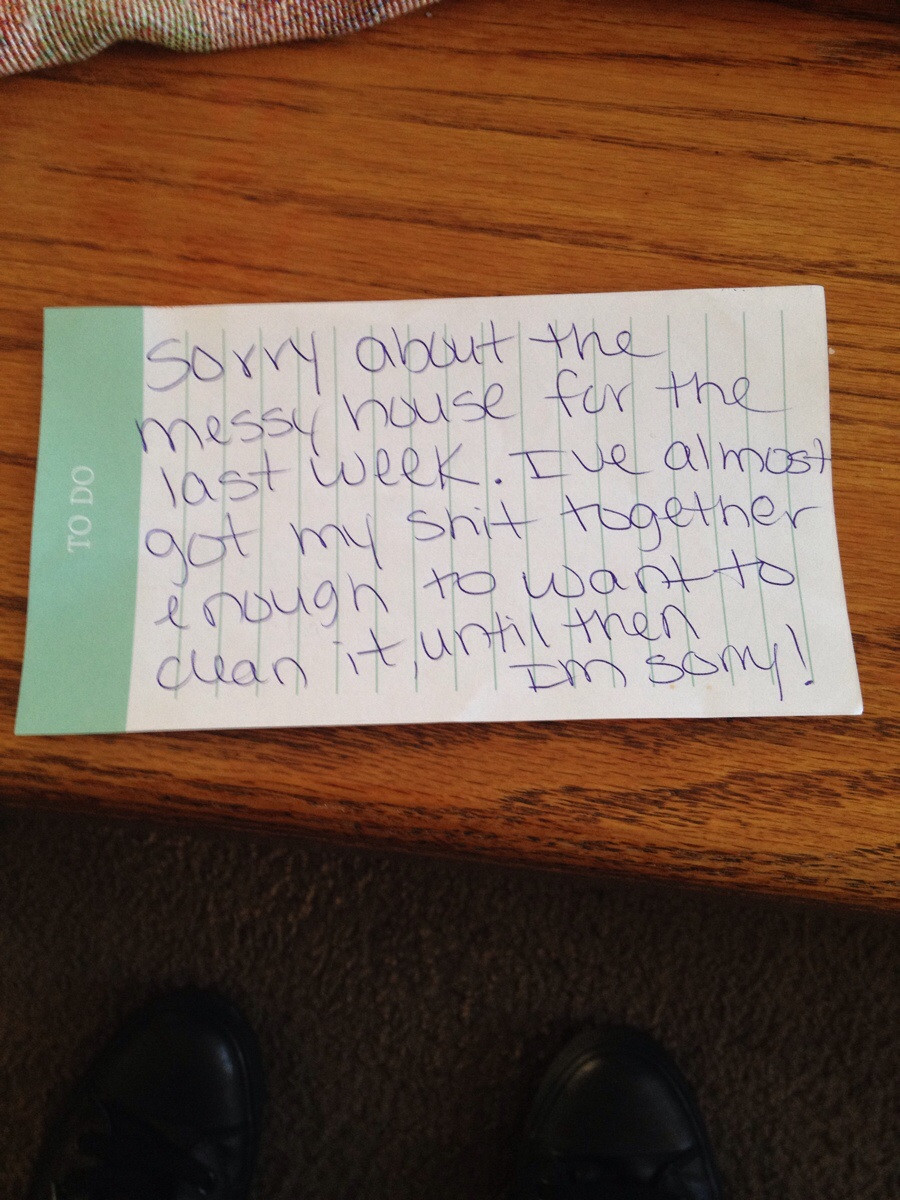 TO DO
Sorry about the
messy house for the
last week. I've almost
got my shit together
enough to want to
clean it, until then
Im sorry!